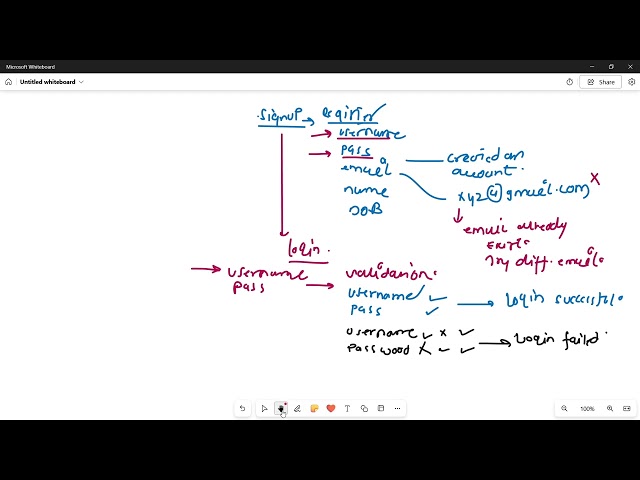 Microsoft Whiteboard
Untitled whiteboard
Share
signup
username
pass
email
name
DOB
created an
account.
xyz@gmail.com x
email already
exists
Try diff. email.
login.
username
pass
validation.
username ✓
pass ✓
login successful.
username ✓ x ✓
password x ✓ ✓
login failed.
100%